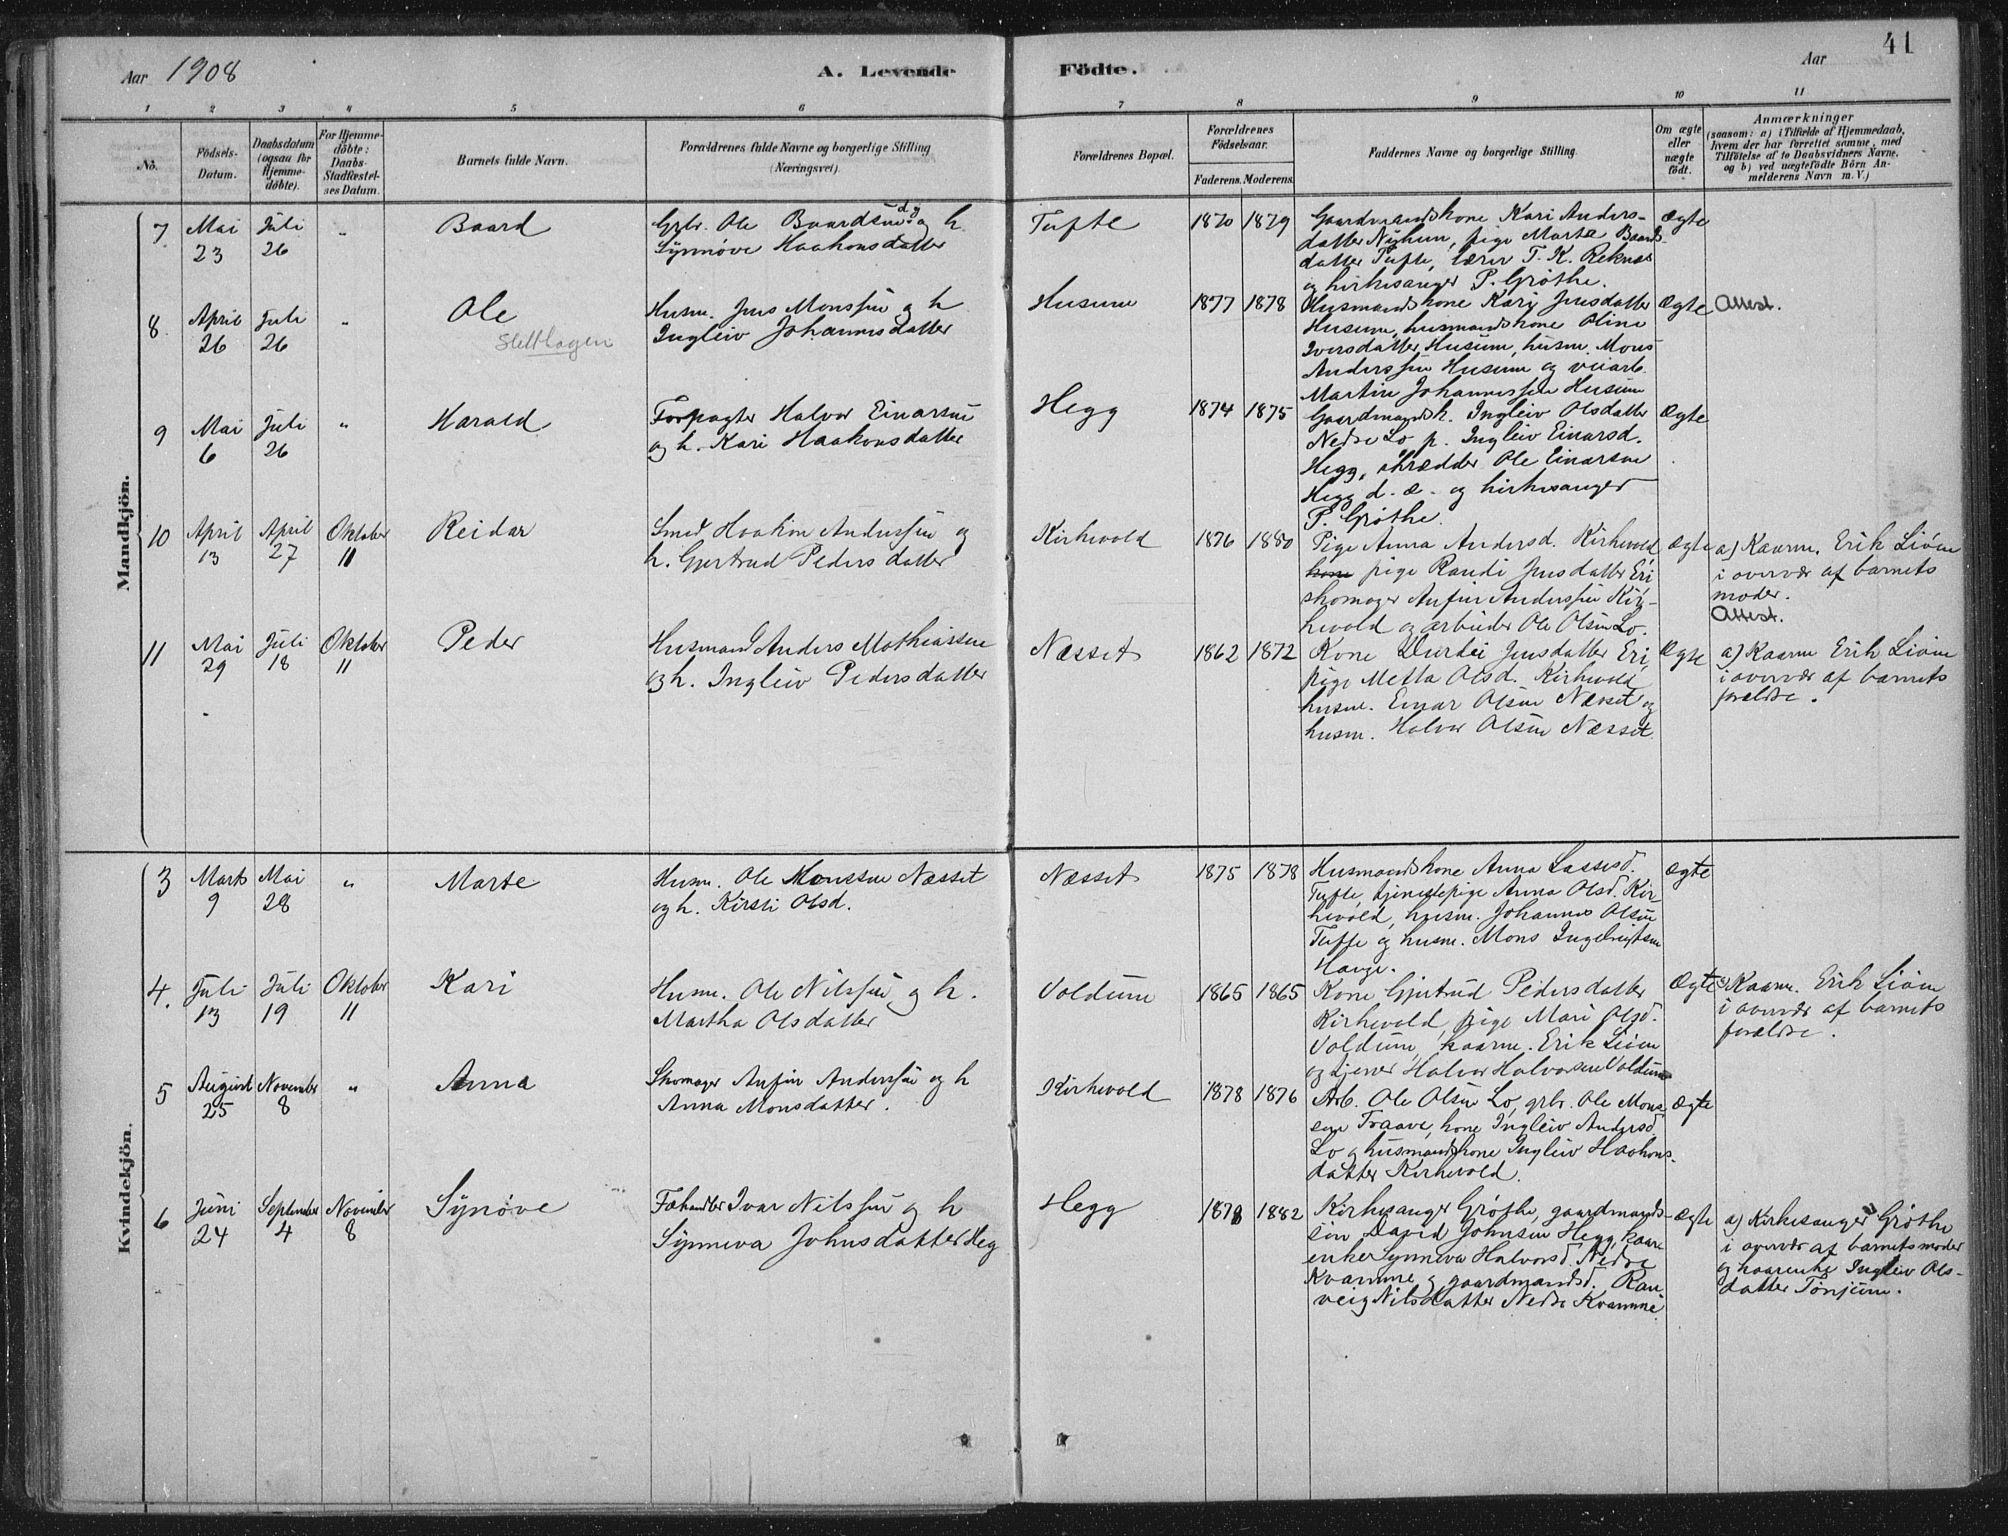 Aar 1908
A. Levende Födte.
Aar
41
1 2 3 4 5 6 7 8 9 10 11
No.
Födsels-Datum.
Daabsdatum (ogsaa for Hjemme-döbte).
For Hjemme-döbte: Daabs-Stadfæstel-ses Datum.
Barnets fulde Navn.
Forældrenes fulde Navne og borgerlige Stilling (Næringsvei).
Forældrenes Bopæl.
Forældrenes Födselsaar.
Faderens. Moderens.
Faddernes Navne og borgerlige Stilling.
Om ægte eller uægte födt.
Anmærkninger
(saasom: a) i Tilfælde af Hjemmedaab, hvem der har forrettet samme, med Tilföielse af to Daabsvidners Navne, og b) ved uægtefödte Börn Anmelderens Navn m. V.)
Mandkjön.
7 Mai 23 Juli 26 " Baard
Grbr. Ole Baardsen og h.
Synnøve Haakonsdatter
Tufte 1870 1879
Gaardmandskone Kari Anders-
datter Nyhun, pige Marta Baards-
datter Tufte, lærer T. K. Reknes
og kirkesanger P. Grøthe.
ægte
8 April 26 Juli 26 " Ole
Sletthagen
Husm. Jens Monssen og h
Ingleiv Johannesdatter
Husum 1877 1878
Husmandskone Kari Jensdatter
Husum, husmandskone Oline
Iversdatter Husum, husm. Mons
Anderssen Husum og veiarb.
Martin Johannessen Husum
Ægte
Attest.
9 Mai 6 Juli 26 " Harald
Forpagter Halvor Einarsen
og h. Kari Haakonsdatter
Hegg 1874 1875
Gaardmandsk. Ingleiv Olsdatter
Nedre Lo, p. Ingleiv Einarsd.
Hegg, skrædder Ole Einarsen
Hegg d. æ. og kirkesanger
P. Grøthe.
Ægte
10 April 13 April 27 Oktober 11 Reidar
Smed Haakon Anderssen og
h. Gjertrud Pedersdatter
Kirkevold 1876 1880
Pige Anna Andersd. Kirkevold
kone pige Randi Jensdatter Eri
skomager Anfin Anderssen Kir-
kevold og arbeider Ole Olsen Lo.
ægte
a) Kaarm. Erik Liøen
i overvær af barnets
moder.
Attest.
11 Mai 29 Juli 18 Oktober 11 Peder
Husmand Anders Mathiassen
og h. Ingleiv Pedersdatter
Næsset 1862 1872
Kone Durdei Jensdatter Eri,
pige Metta Olsd. Kirkevold
husm. Einar Olsen Næsset og
husm. Halvor Olsen Næsset.
Ægte
a) Kaarm Erik Liøen
i overvær af barnets
forældre.
Kvindekjön.
3 Marts 9 Mai 28 " Marte
Husm. Ole Monssen Næsset
og h. Kirsti Olsd.
Næsset 1875 1878
Husmandskone Anna Lassesd.
Tufte, tjenestepige Anna Olsd. Kir-
kevold, husm. Johannes Olsen
Tufte og husm. Mons Ingebrigtsen
Hauge.
ægte
4. Juli 13 Juli 19 Oktober 11 Kari
Husm. Ole Nilssen og h.
Martha Olsdatter
Voldum 1865 1865
Kone Gjertrud Pedersdatter
Kirkevold, pige Mari Olsd.
Voldum, kaarm. Erik Liøen
og tjener Halvor Halvorsen Voldum
Ægte
a) Kaarm. Erik Liøen
i overvær af barnets
forældre.
5 August 25 November 8 " Anna
Skomager Anfin Anderssen og h
Anna Monsdatter.
Kirkevold 1878 1876
Arb. Ole Olsen Lo, grbr. Ole Mons-
sen Traave, kone Ingleiv Andersd.
Lo og husmandskone Ingleiv Haakons-
datter Kirkevold.
ægte
6 Juni 24 September 4 November 8 Synøve
Fæhandler Ivar Nilssen og h
Synneva Johnsdatter Heg
Hegg 1878 1882
Kirkesanger Grøthe, gaardmands-
søn David Johnsen Hegg, kaar-
enke Synneva Halvorsd. Nedre
Kvamme og gaardmandsd. Ran-
veig Nilsdatter Nedre Kvamme.
ægte
a) Kirkesanger Grøthe
i overvær af barnets moder
og kaarenke Ingleiv Ols-
datter Tønjum.